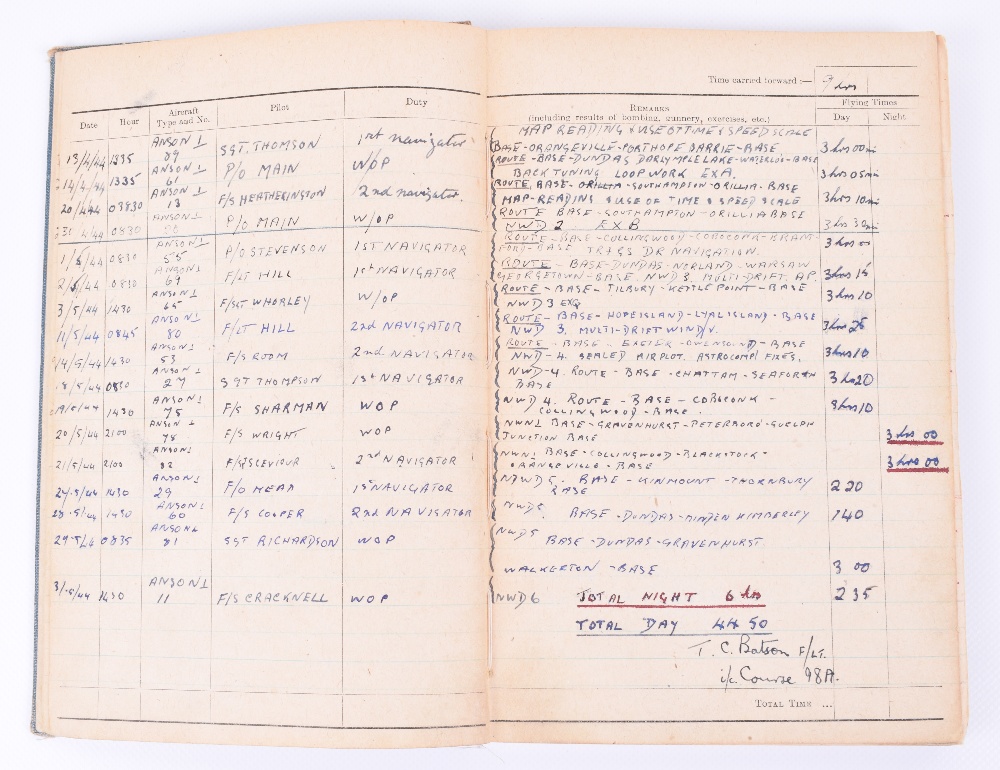 Time carried forward :— 7 hrs
Date Hour Aircraft Type and No. Pilot Duty REMARKS Flying Times
(including results of bombing, gunnery, exercises, etc.) Day Night
MAP READING & USE OF TIME & SPEED SCALE
13/4/44 1335 ANSON I 89 SGT. THOMSON 1st navigator BASE-ORANGEVILLE-PORTHOPE BARRIE-BASE 3 hrs 00
ROUTE-BASE-DUNDAS DARLYMPLE LAKE-WATERLOO-BASE
14/4/44 1335 ANSON I 61 P/O MAIN W/OP BACK TUNING LOOP WORK EX A. 3 hrs 05
ROUTE BASE-ORILLIA-SOUTHAMPTON-ORILLIA-BASE
20/4/44 03830 ANSON I 13 F/S HEATHERINGTON 2nd navigator. MAP-READING & USE OF TIME & SPEED SCALE 3 hrs 10
ROUTE BASE-SOUTHAMPTON-ORILLIA BASE
30/4/44 0830 ANSON I P/O MAIN W/OP NWD 2 EX B 3 hrs 30
ROUTE-BASE-COLLINGWOOD-COBOCONK-BRANT-
1/5/44 0830 ANSON I 55 P/O STEVENSON 1ST NAVIGATOR FORD-BASE DR NAVIGATION. 3 hrs 00
ROUTE-BASE-DUNDAS-NORLAND-WARSAW
2/5/44 0830 ANSON I 69 F/LT HILL 1st NAVIGATOR GEORGETOWN-BASE NWD 3. MULTI-DRIFT AP. 3 hrs 15
ROUTE-BASE-TILBURY-KETTLE POINT-BASE
3/5/44 1430 ANSON I 65 F/SGT WHORLEY W/OP NWD 3 3 hrs 10
ROUTE-BASE-HOPE ISLAND-LYAL ISLAND-BASE
11/5/44 0845 ANSON I 80 F/LT HILL 2nd NAVIGATOR NWD 3. MULTI-DRIFT WIND V. 3 hrs 25
ROUTE-BASE-EXETER-OWENSOUND-BASE
14/5/44 1430 ANSON I 53 F/S ROOM 2nd NAVIGATOR NWD-4. SEALED AIRPLOT. ASTROCOMP FIXES. 3 hrs 10
NWD-4. ROUTE-BASE-CHATTAM-SEAFORTH
18/5/44 0830 ANSON I 27 SGT THOMPSON 1st NAVIGATOR BASE 3 hrs 20
NWD 4. ROUTE-BASE-COBOCONK-
1430 ANSON I 75 F/S SHARMAN WOP COLLINGWOOD-BASE. 3 hrs 10
NWN1 BASE-GRAVENHURST-PETERBORO-GUELPH
20/5/44 2100 ANSON I 78 F/S WRIGHT WOP JUNCTION BASE 3 hrs 00
NWN1 BASE-COLLINGWOOD-BLACKSTOCK-
21/5/44 2100 ANSON I 82 F/SGT SCEVIOUR 2nd NAVIGATOR ORANGEVILLE-BASE 3 hrs 00
NWD 5. BASE-KINMOUNT-THORNBURY
27.5/44 1430 ANSON I 29 F/O MEAD 1st NAVIGATOR BASE 2 20
28.5/44 1430 ANSON I 60 F/S COOPER 2nd NAVIGATOR NWD5. BASE-DUNDAS-MINDEN KIMBERLEY 1 40
NWD5
29.5/44 0835 ANSON I 81 SGT RICHARDSON WOP BASE-DUNDAS-GRAVENHURST.
WALKERTON-BASE 3 00
31.5/44 1430 ANSON I 11 F/S CRACKNELL WOP NWD 6 TOTAL NIGHT 6 hrs 2 35
TOTAL DAY 44 50
T. C. Batson F/LT.
i/c. Course 98A.
TOTAL TIME ...